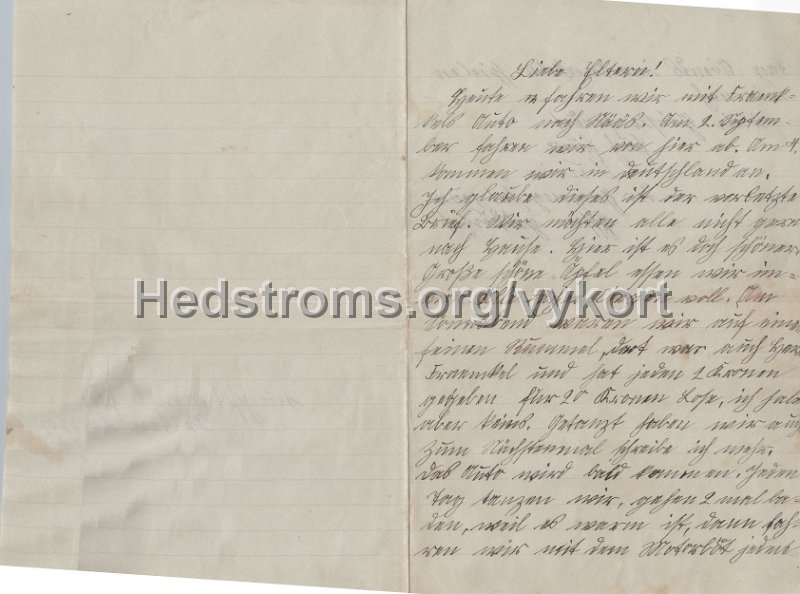 Liebe Eltern!
Heute erfahren wir mit Fraenk-
kels Auto nach Nääs. Am 2. Septem-
ber fahren wir von hier ab. Am 4.
kommen wir in Deutschland an.
Ich glaube dieses ist der vorletzte
Brief. Wir möchten alle nicht gern
nach Hause. Hier ist es doch schöner.
Große schöne Äpfel essen wir im-
voll. Am
Hedstroms.org/vykort
waren wir auf einem
feinen Rummel, dort war auch Herr
Fraenkel und hat jeden 2 Kronen
gegeben für 20 Kronen Lose, ich habe
aber keins. Getanzt haben wir auch
Zum Nächstenmal schreibe ich mehr.
Das Auto wird bald kommen. Jeden
Tag tanzen wir, gehen 2 mal ba-
den, weil es warm ist, dann fah-
ren wir mit dem Motorboot jeden